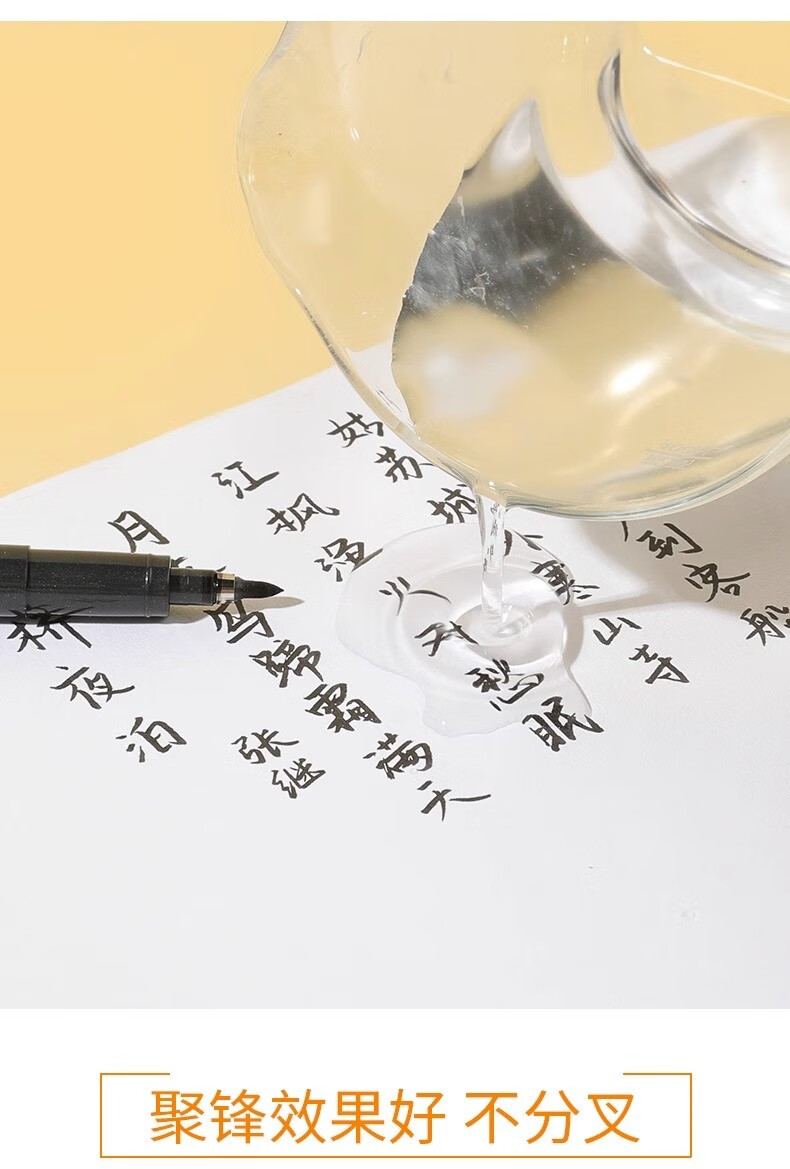 桥夜泊
张继
月乌蹄霜满天
江枫渔火对愁眠
姑苏城寒山寺
到客船
聚锋效果好 不分叉